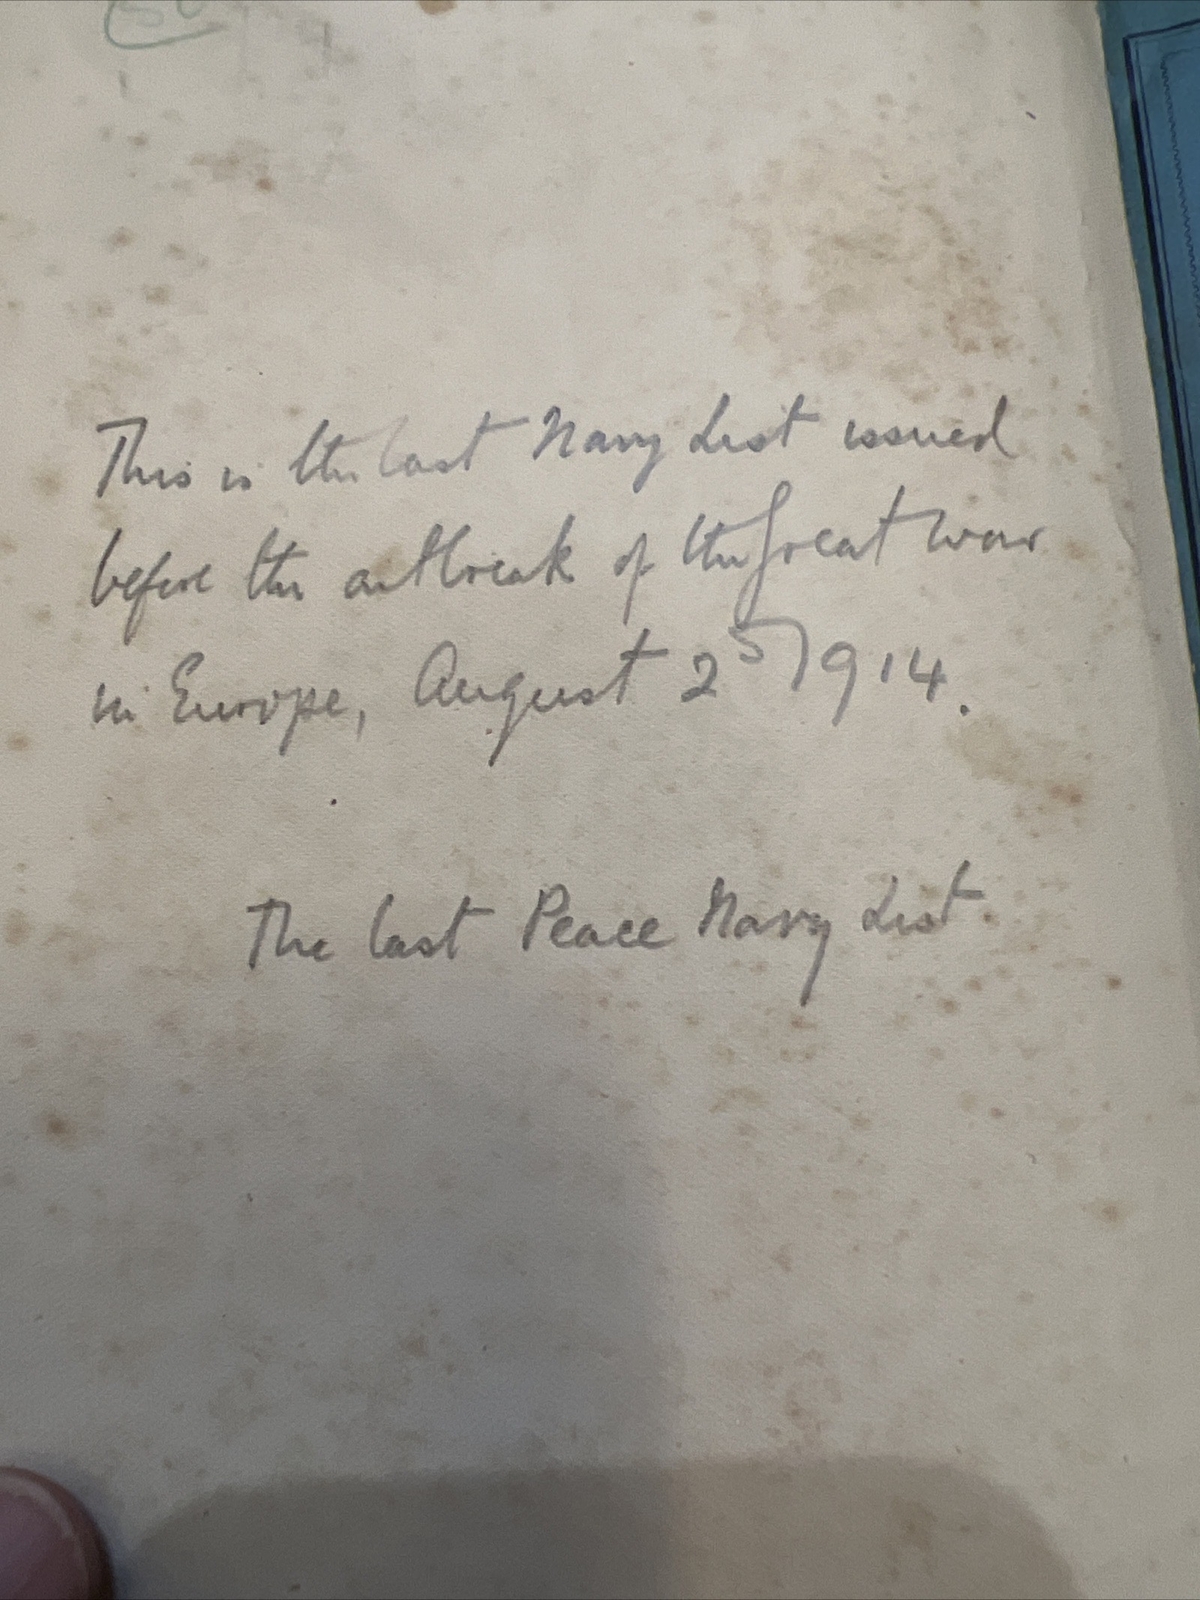 This is the last Navy List issued
before the outbreak of the Great War
in Europe, August 2⁵ 1914.
The last Peace Navy List.